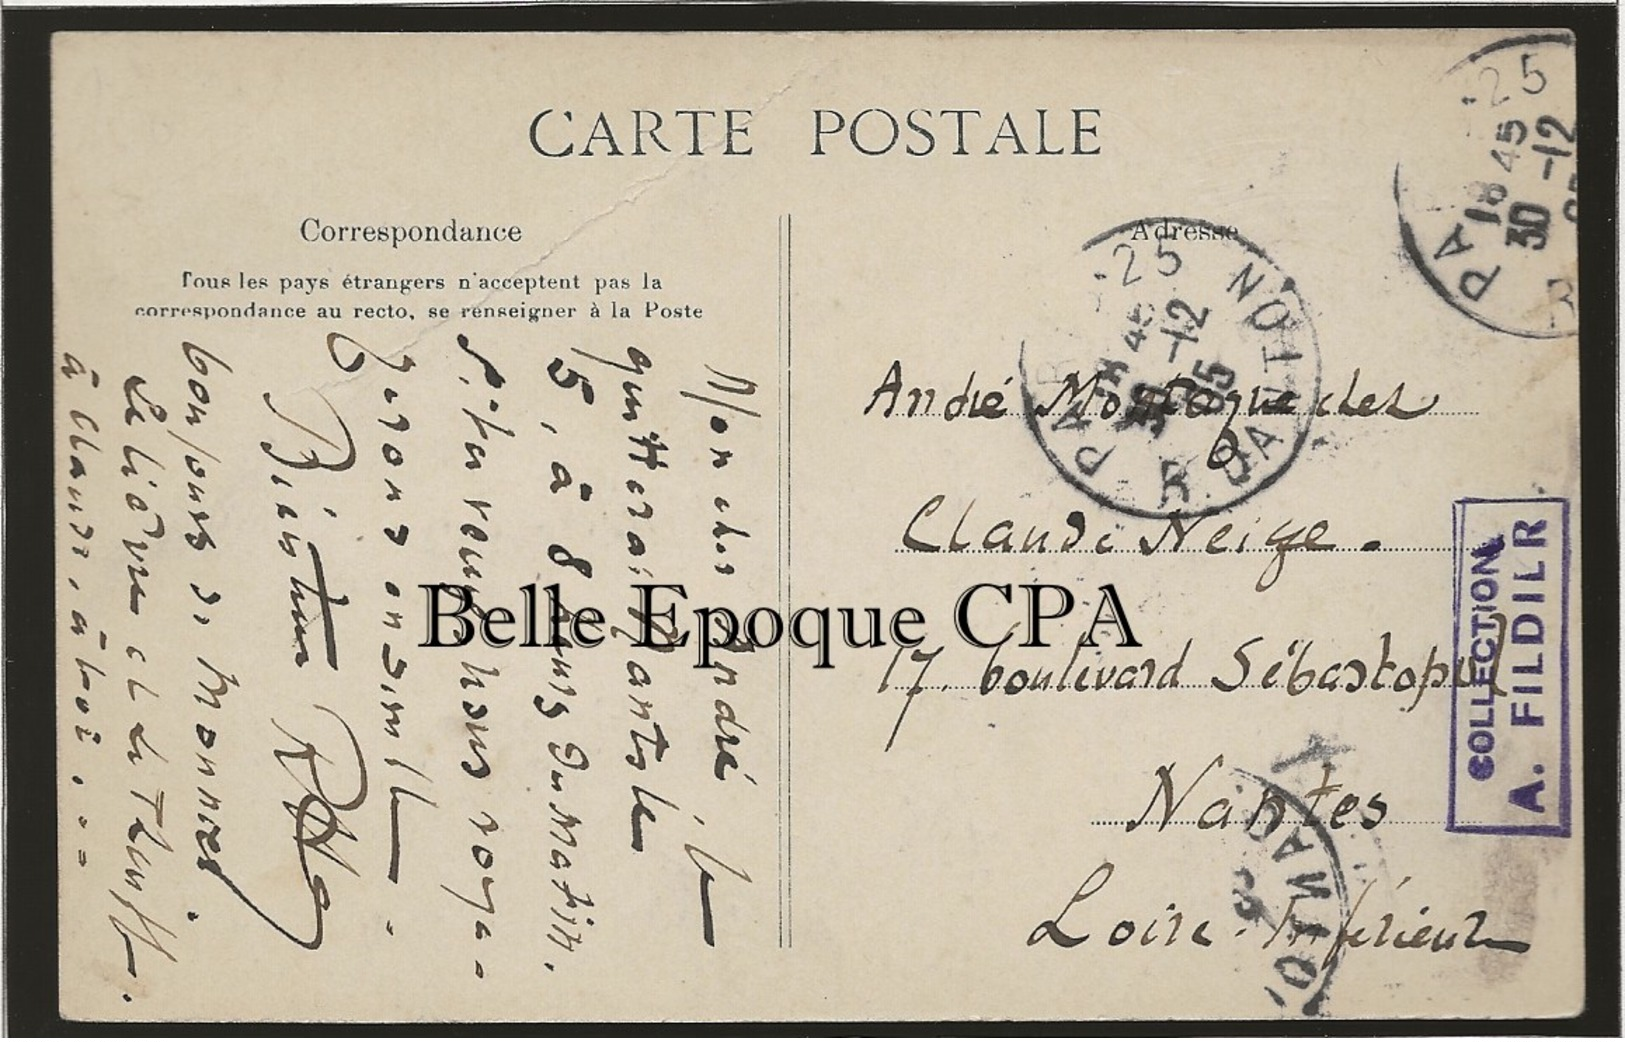 CARTE POSTALE
Correspondance
Tous les pays étrangers n'acceptent pas la
correspondance au recto, se renseigner à la Poste
Mon cher André, je
quitterai Nantes le
5, à 8 heures du matin.
Si tu veux nous voya-
gerons ensemble.
Bien à
bonjours de Monnier.
à Claude, à toi...
Adresse
André Montagne chez
Claude Neige.
17. boulevard Sébastopol
Nantes
Loire-Inférieure
PARIS-25
18 45
30 -12
05
R. DANTON
PA
-25
18 45
30 -12
R
COLLECTION
A. FILDIER
Belle Epoque CPA